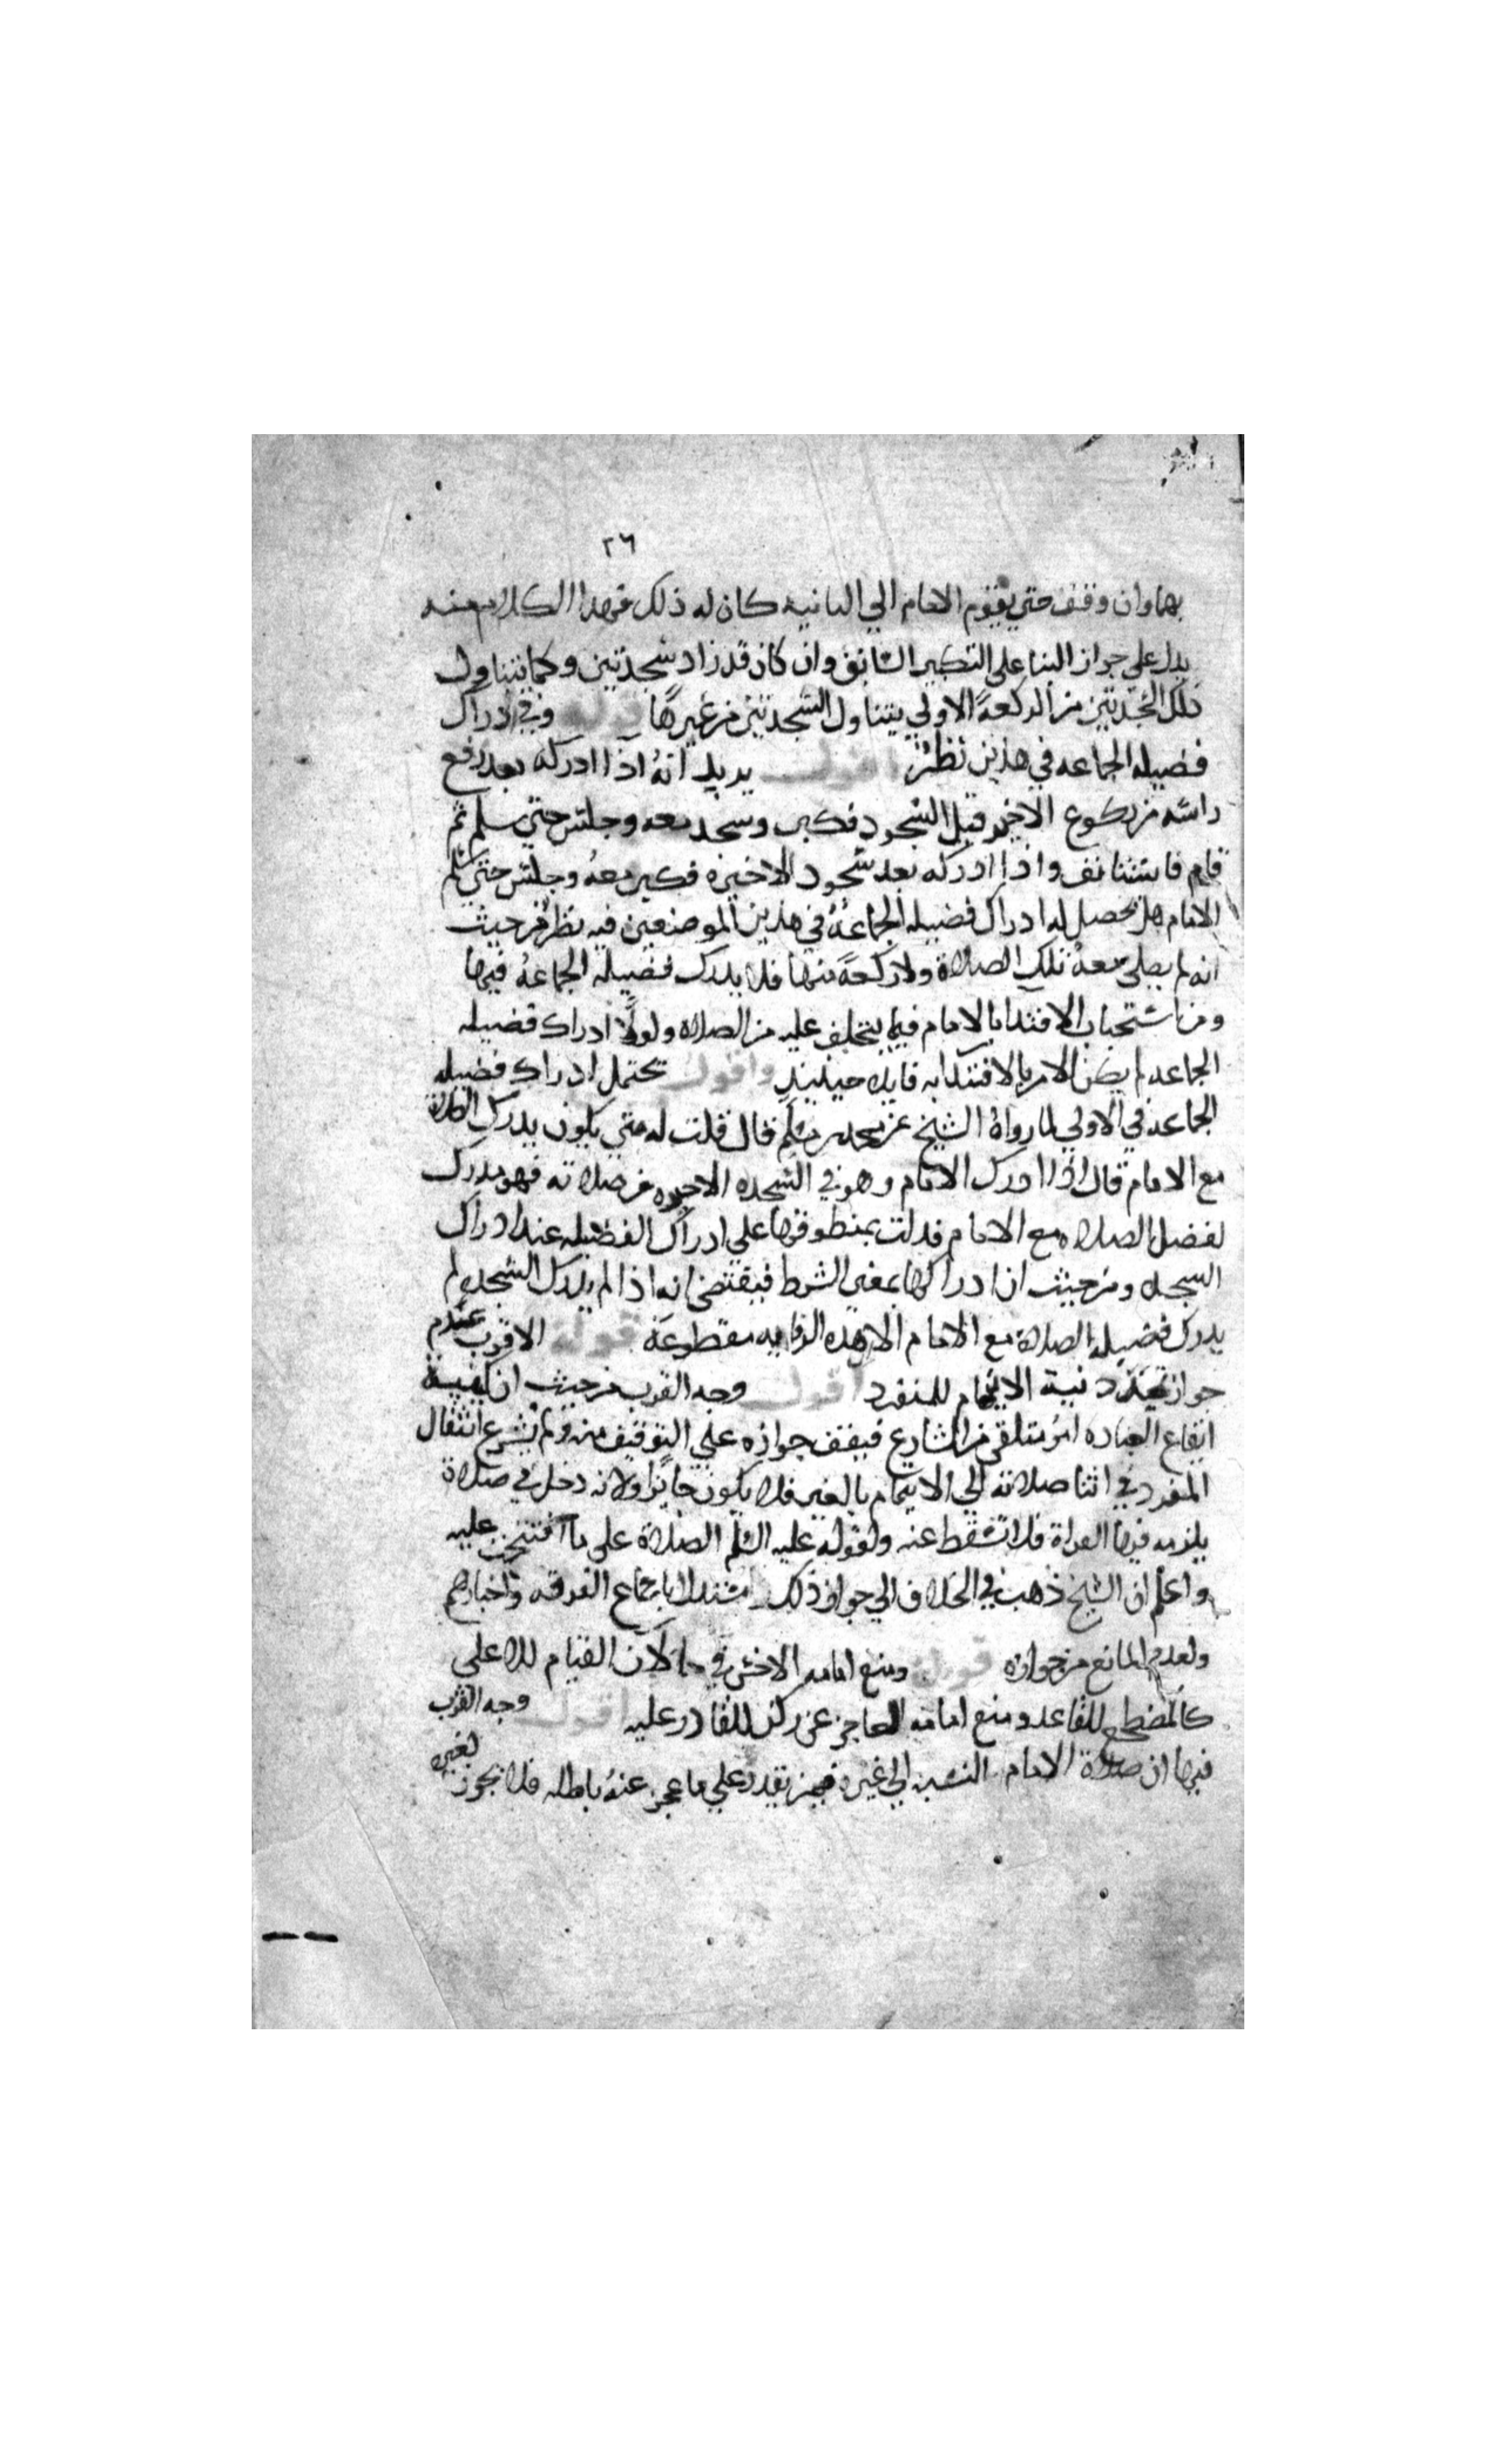 ٢٦
بها وان وقف حتى يقوم الامام الي الثانيه كان له ذلك فهذا الكلام منه
يدل على جواز البنا على التكبير السابق وان كان قد زاد سجدتين وكما يتناول
تلك السجدتين من الركعة الاولي يتناول السجدتين من غيرها قوله وفي ادراك
فضيله الجماعه في هذين نظر اقول يريد انه اذا ادركه بعد رفع
راسه من ركوع الاخيره قبل السجود فكبر وسجد معه وجلس حتي يسلم ثم
قام فاستانف واذا ادركه بعد سجود الاخيره فكبر معه وجلس حتي يسلم
الامام هل يحصل له ادراك فضيله الجماعة في هذين الموضعين فيه نظر من حيث
انه لم يصلي معه تلك الصلاة ولا ركعة منها فلا يدرك فضيله الجماعة فيها
ومن استحباب الاقتدا بالامام فيما يتخلف عليه من الصلاه ولولا ادراك فضيله
الجماعه لم يكن الامر بالاقتدا به فايده حينيذ واقول يحتمل ادراك فضيله
الجماعه في الاولي لما رواه الشيخ عن محمد بن مسلم قال قلت له متي يكون يدرك الصلاة
مع الامام قال اذا ادرك الامام وهو في السجده الاخيره من صلاته فهو مدرك
لفضل الصلاه مع الامام فدلت بمنطوقها علي ادراك الفضيله عند ادراك
السجده ومن حيث ان ادراكها بمعنى الشرط فيقتضي انه اذا لم يدرك السجده لم
يدرك فضيله الصلاة مع الامام الا هذه الروايه مقطوعة قوله الاقرب عدم
جواز تجدد نية الايتمام للمنفرد اقول وجه القرب من حيث ان كيفية
ايقاع العباده امر متلقى من الشارع فيقف جوازه على التوقيف منه ولم يشرع انتقال
المنفرد في اثنا صلاته الي الايتمام بالغير فلا يكون جايزا ولانه دخل في صلاة
يلزمه فيها القراة فلا تسقط عنه ولقوله عليه السلم الصلاة على ما افتتحت عليه
واعلم ان الشيخ ذهب في الخلاف الي جواز ذلك مستدلا باجماع الفرقه واخبارهم
ولعدم المانع من جوازه قوله ومنع امامه الاخس في حالات القيام للاعلى
كالمضطجع للقاعد ومنع امامه العاجز عن ركن للقادر عليه اقول وجه القرب
فيها ان صلاة الامام بالنسبه الي غيره فيمن يقدر على ما عجز عنه باطله فلا يجوز لغيره